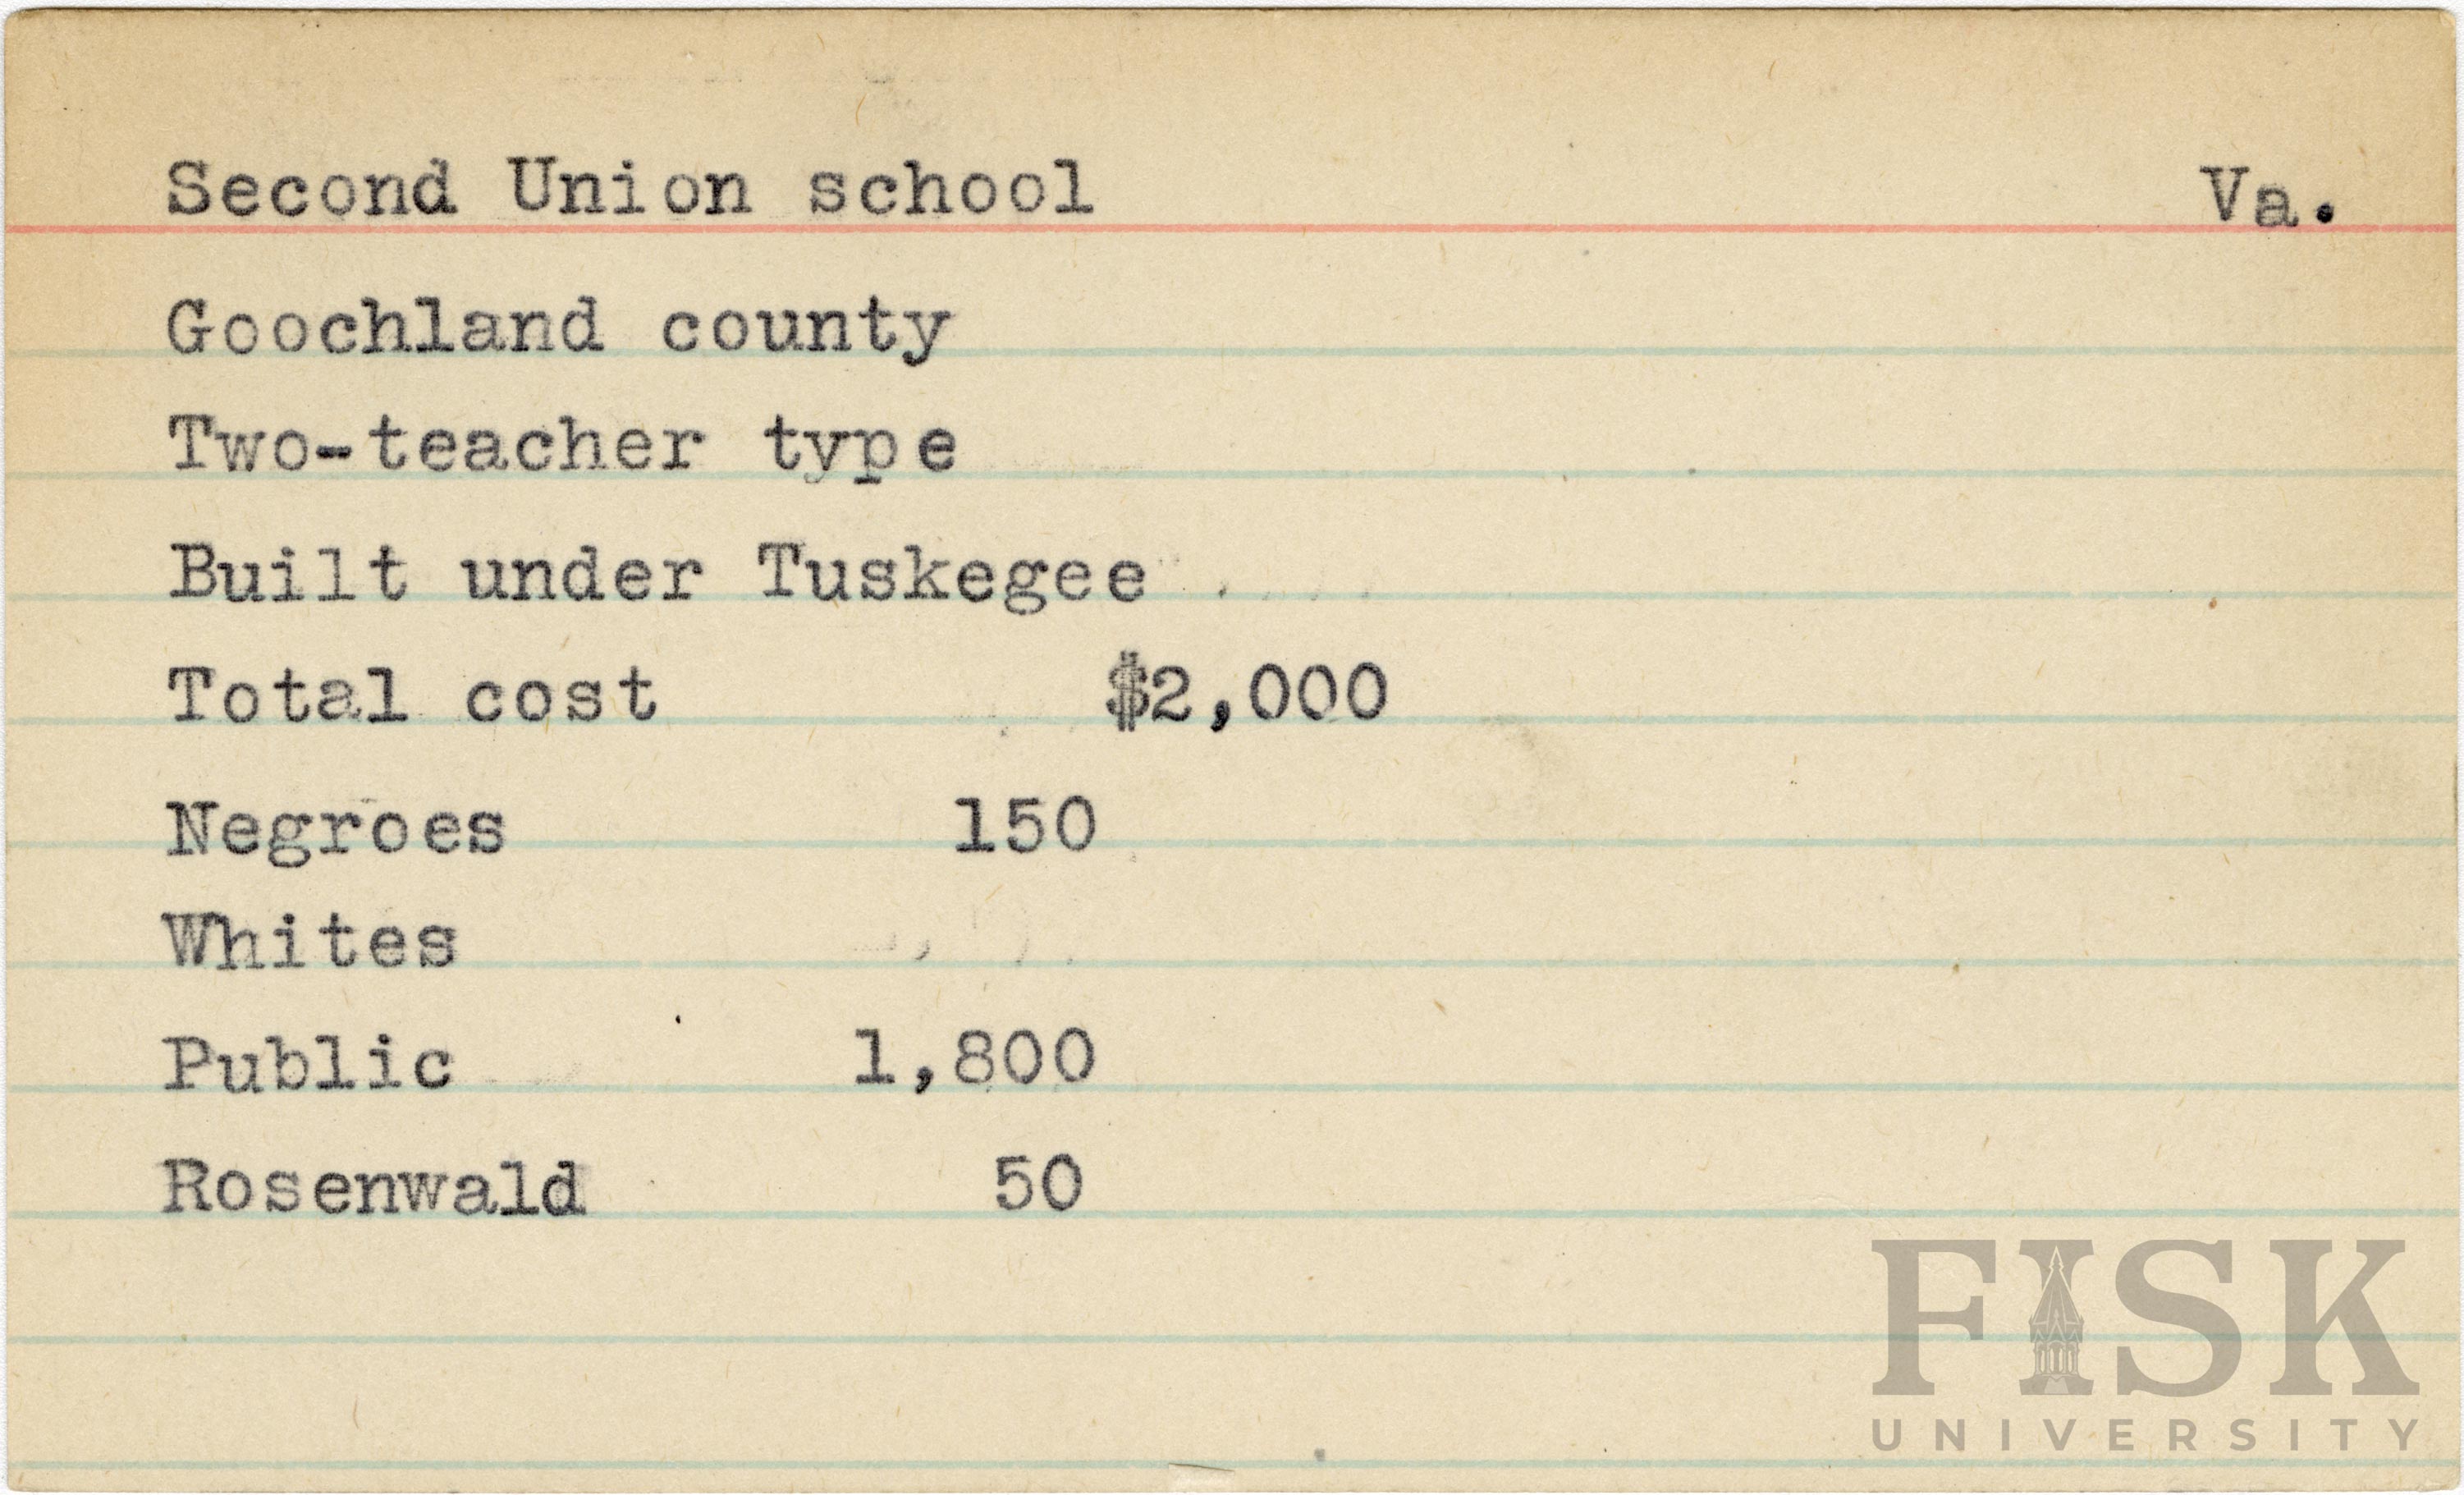 Second Union school Va.
Goochland county
Two-teacher type
Built under Tuskegee
Total cost $2,000
Negroes 150
Whites
Public 1,800
Rosenwald 50
FISK
UNIVERSITY